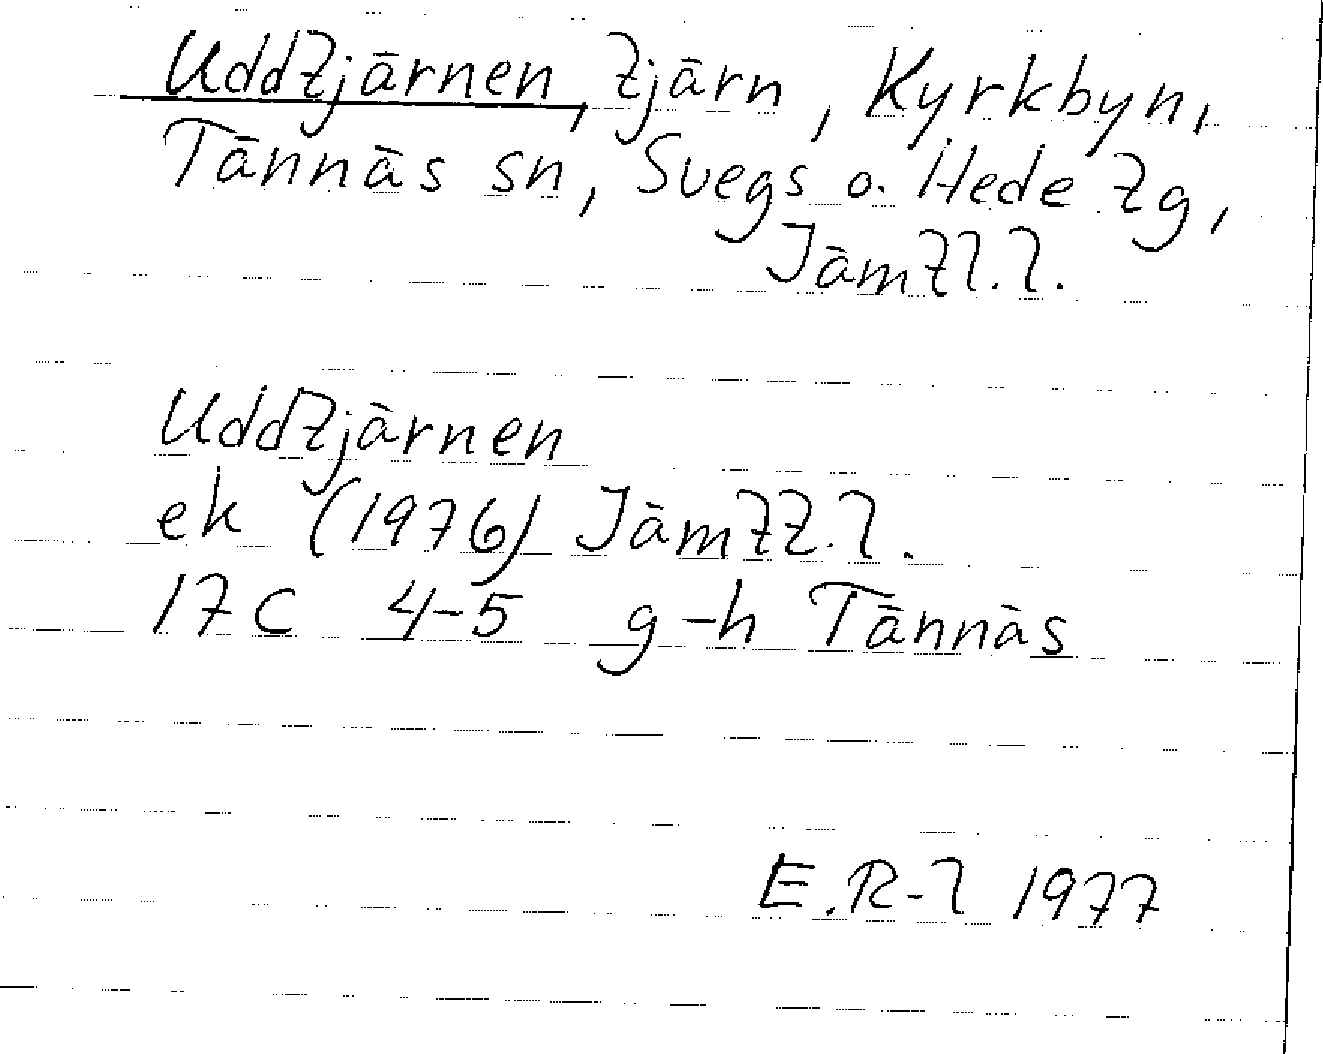 Uddtjärnen, tjärn, Kyrkbyn,
Tännäs sn, Svegs o. Hede tg,
Jämtl.l.
Uddtjärnen
ek (1976) Jämtl.l.
17C 4-5 g-h Tännäs
E.R-l 1977